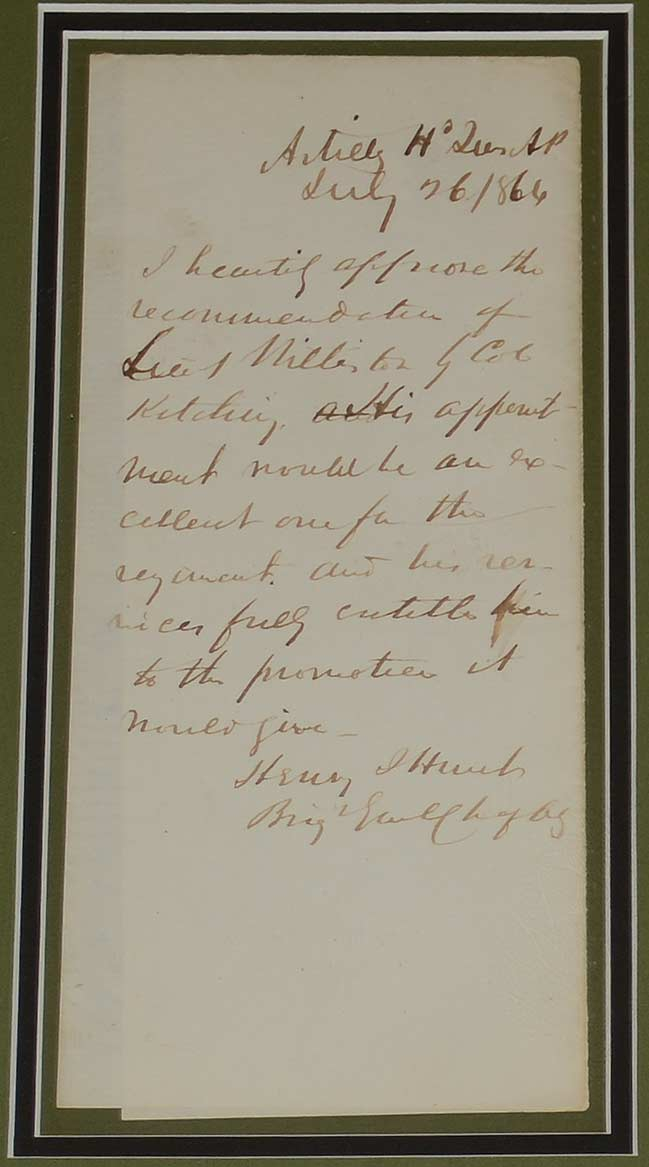 Artilly Hd Qurs AP
July 26/864
I heartily approve the
recommendation of
Lieut Williston by Col
Kitching. as His appoint-
ment would be an ex-
cellent one for the
regiment. and his ser-
vices fully entitle him
to the promotion it
would give –
Henry J Hunt
Brigr Genl Ch of Arty